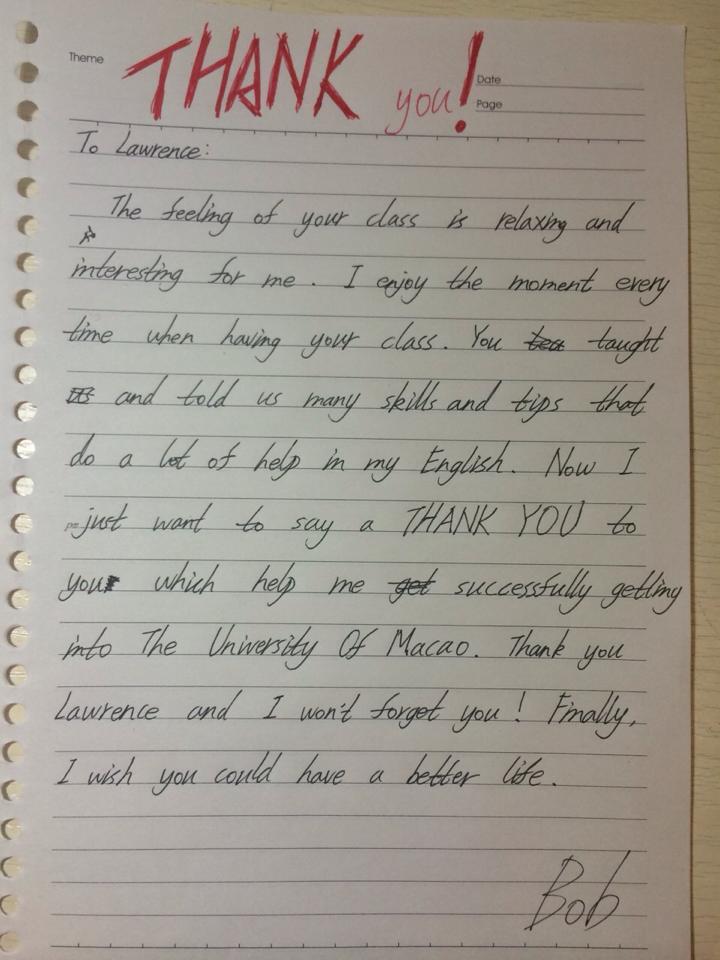 Theme
THANK you!
Date
Page
To Lawrence:
The feeling of your class is relaxing and
interesting for me. I enjoy the moment every
time when having your class. You taught
and told us many skills and tips that
do a lot of help in my English. Now I
just want to say a THANK YOU to
you which help me get successfully getting
into The University Of Macao. Thank you
Lawrence and I won't forget you! Finally,
I wish you could have a better life.
Bob